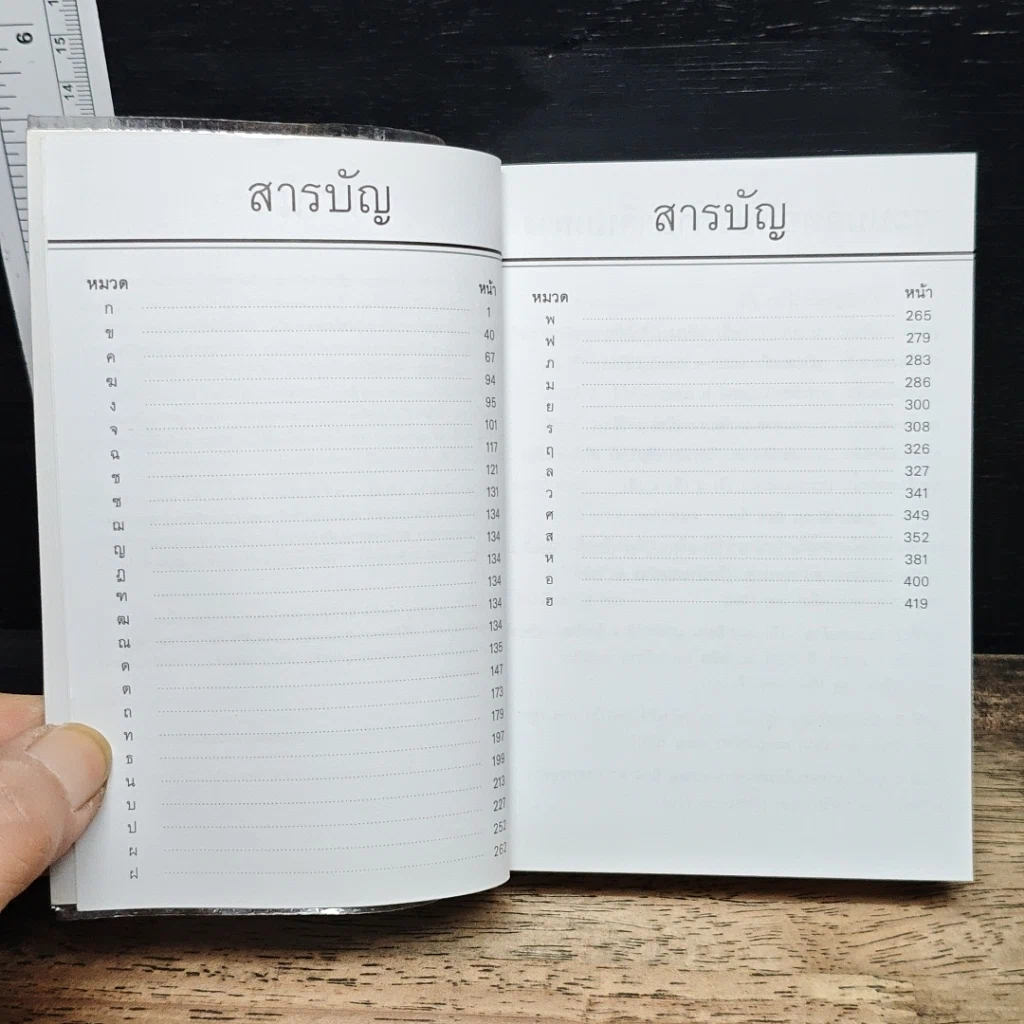 6
15
14
สารบัญ
หมวด หน้า
ก 1
ข 40
ค 67
ฆ 94
ง 95
จ 101
ฉ 117
ช 121
ซ 131
ฌ 134
ญ 134
ฎ 134
ฑ 134
ฒ 134
ณ 134
ด 135
ต 147
ถ 173
ท 179
ธ 197
น 199
บ 213
ป 227
ผ 252
ฝ 262
สารบัญ
หมวด หน้า
พ 265
ฟ 279
ภ 283
ม 286
ย 300
ร 308
ฤ 326
ล 327
ว 341
ศ 349
ส 352
ห 381
อ 400
ฮ 419